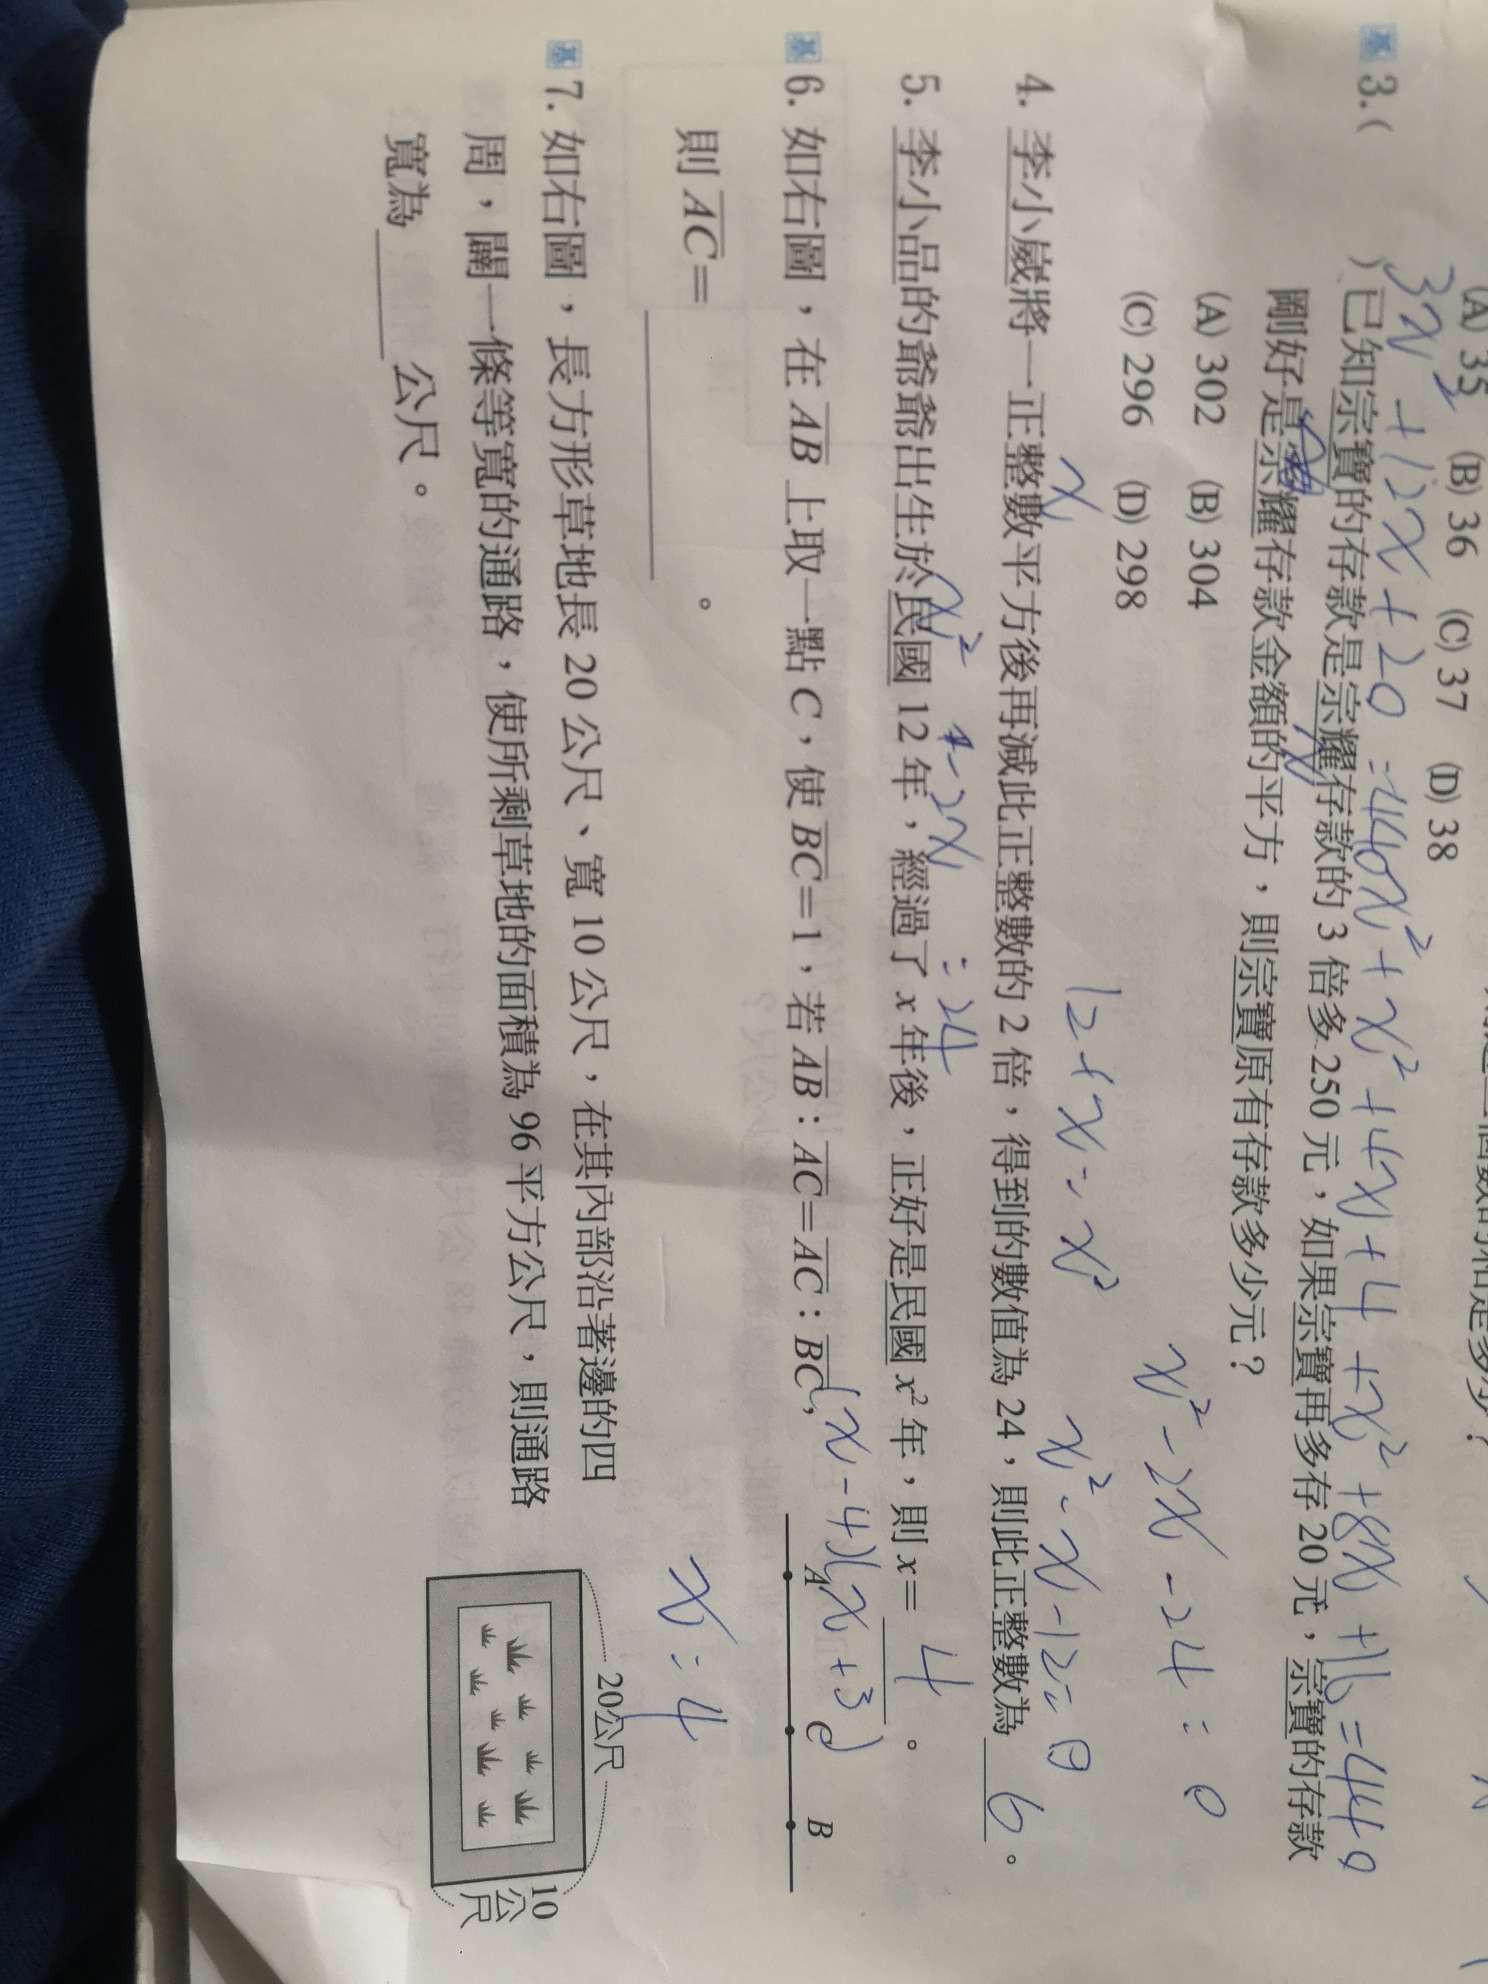 (A) 35 (B) 36 (C) 37 (D) 38
3x² + 12x + 20 = 440x² + x² + 4x + 4 + x² + 8x + 16 = 440
基 3. ( )已知宗寶的存款是宗耀存款的 3 倍多 250 元，如果宗寶再多存 20 元，宗寶的存款
剛好是宗耀存款金額的平方，則宗寶原有存款多少元？
x
(A) 302 (B) 304
(C) 296 (D) 298
x² - 2x - 24 = 0
x
12 + x = x²
x² - x - 12 = 0
4. 李小崴將一正整數平方後再減此正整數的 2 倍，得到的數值為 24，則此正整數為 6 。
x² - 2x = 24
5. 李小品的爺爺出生於民國 12 年，經過了 x 年後，正好是民國 x² 年，則 x= 4 。
(x - 4)(x + 3)
基 6. 如右圖，在 AB 上取一點 C，使 BC=1，若 AB：AC=AC：BC，
則 AC= 。
A C B
x = 4
基 7. 如右圖，長方形草地長 20 公尺、寬 10 公尺，在其內部沿著邊的四
周，闢一條等寬的通路，使所剩草地的面積為 96 平方公尺，則通路
寬為 公尺。
20公尺
10
公
尺